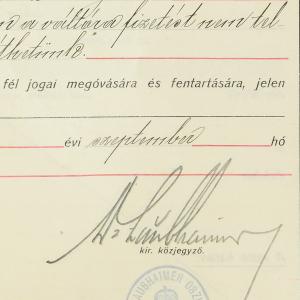 a váltóra fizetést nem tel-
fél jogai megóvására és fentartására, jelen
évi szeptember hó
Dr Laubhaimer
kir. közjegyző.
LAUBHAIMER OSZK